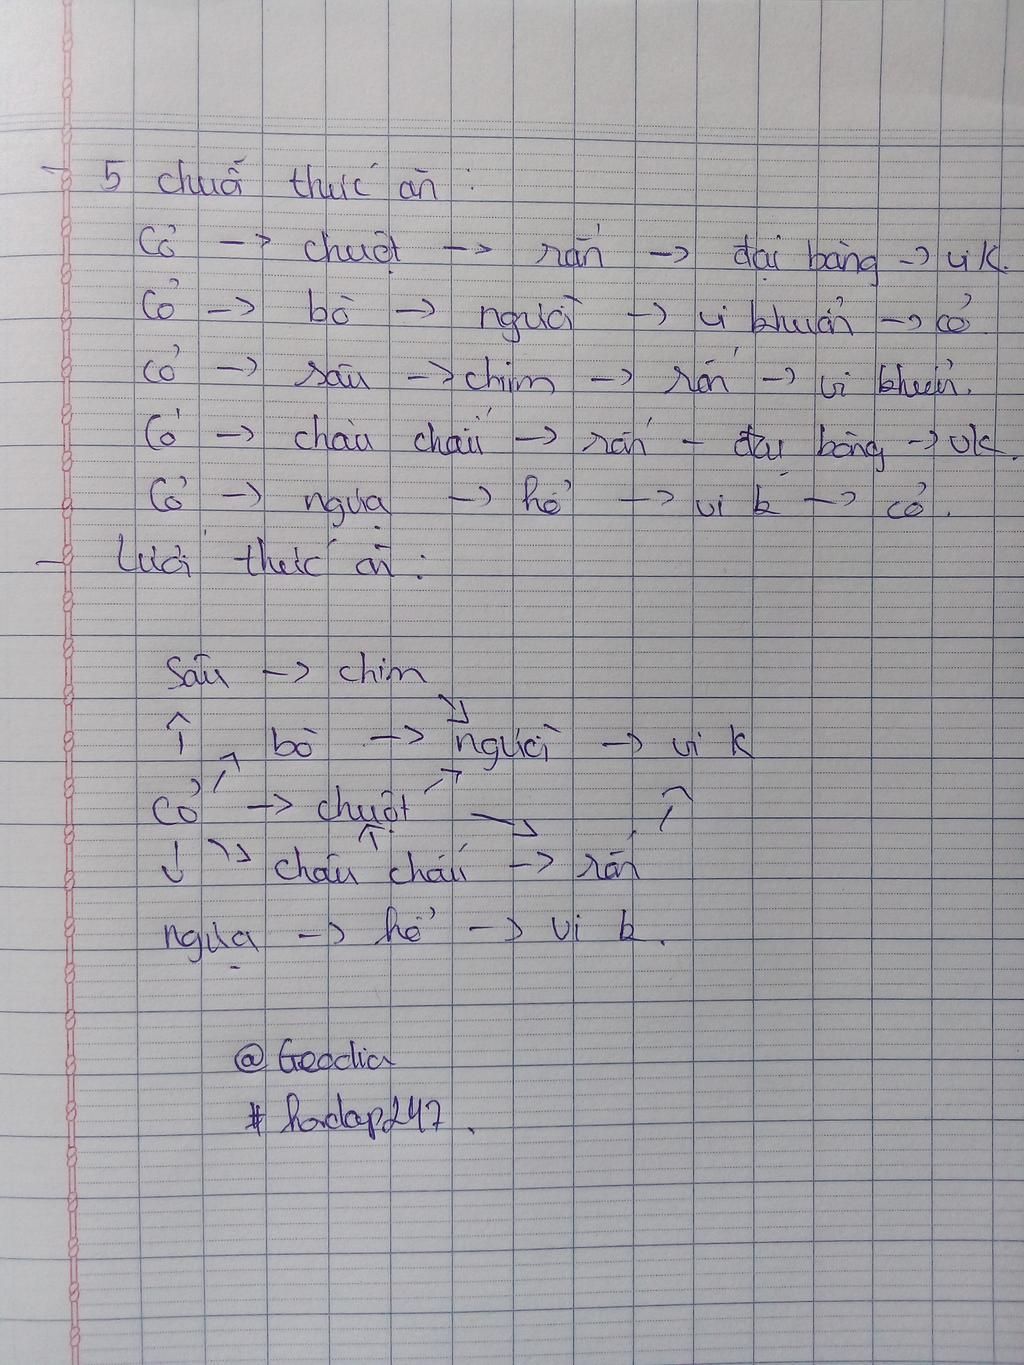 - 5 chuỗi thức ăn :
Cỏ -> chuột -> rắn -> đại bàng -> vk.
Cỏ -> bò -> người -> vi khuẩn -> cỏ.
cỏ -> sâu -> chim -> rắn -> vi khuẩn.
Cỏ -> châu chấu -> rắn - đại bàng -> vk.
Cỏ -> ngựa -> hổ -> vi k -> cỏ.
- Lưới thức ăn :
Sâu -> chim
↑ ↘
↗ bò -> người -> vi k
Cỏ -> chuột ↗ ↘ ↗
↓ ↘ châu chấu ↑ -> rắn
ngựa -> hổ -> vi k.
@ Geodia
# hoidap247.